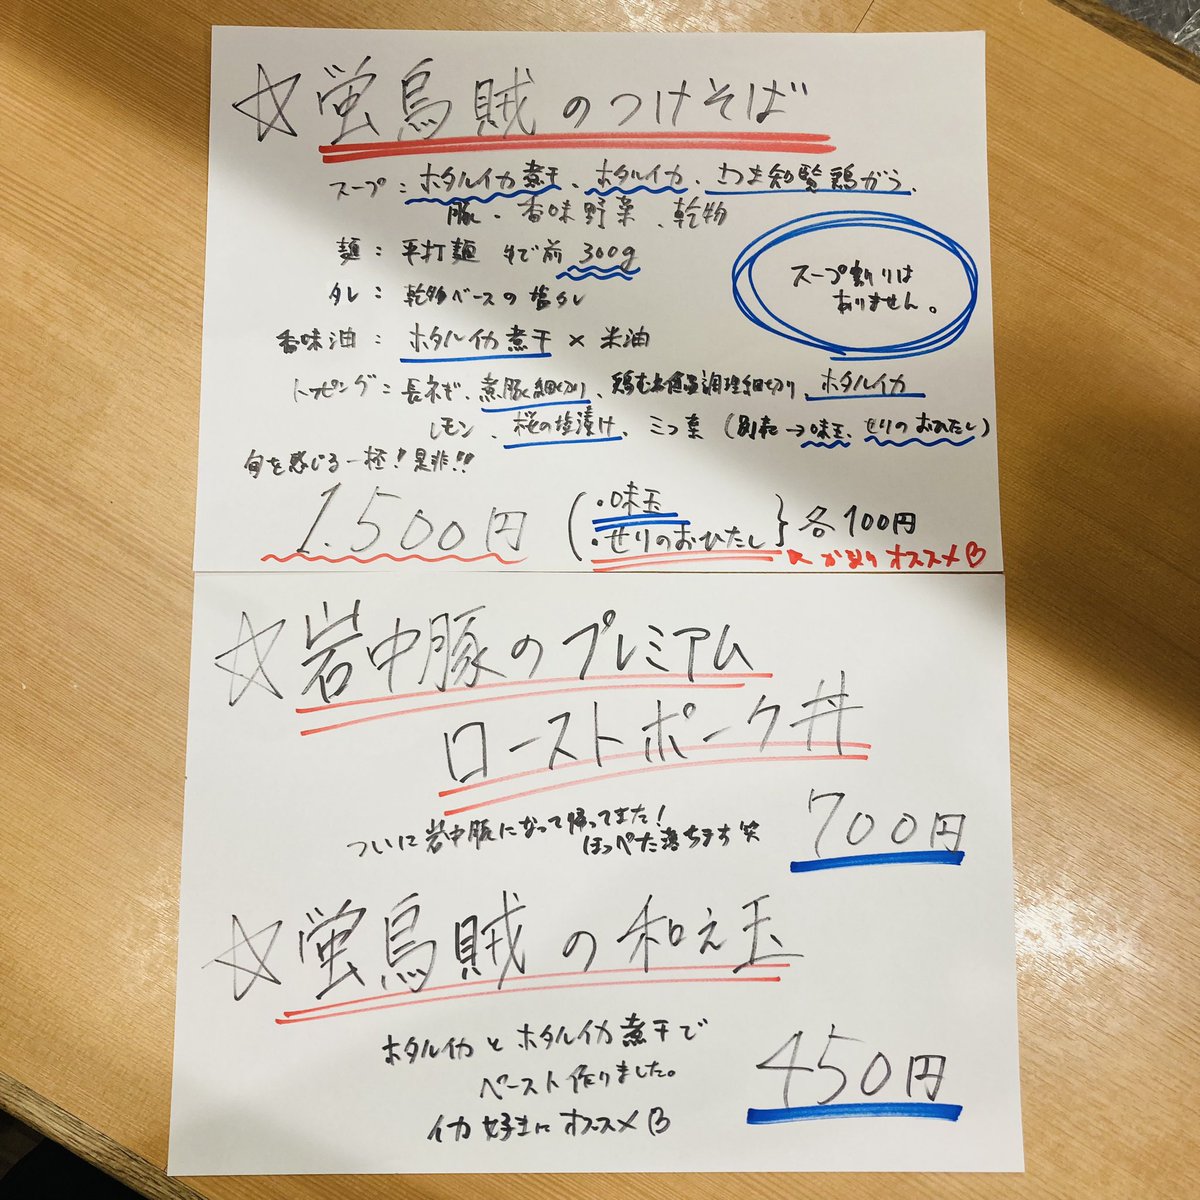 ☆蛍烏賊のつけそば
スープ：ホタルイカ煮干、ホタルイカ、さつま知覧鶏がら、
豚、香味野菜、乾物
麺：平打麺 ゆで前 300g
タレ：乾物ベースの塩タレ
スープ割りは
ありません。
香味油：ホタルイカ煮干×米油
トッピング：長ネギ、煮豚細切り、鶏むね低温調理細切り、ホタルイカ
レモン、桜の塩漬け、三つ葉（別売→味玉、せりのおひたし）
旬を感じる一杯！是非!!
1.500円
（・味玉
・せりのおひたし｝各100円
↖かなりオススメ♡
☆岩中豚のプレミアム
ローストポーク丼
ついに岩中豚になって帰ってきた！
ほっぺた落ちます笑
700円
☆蛍烏賊の和え玉
ホタルイカとホタルイカ煮干で
ペースト作りました。
イカ好きにオススメ♡
450円